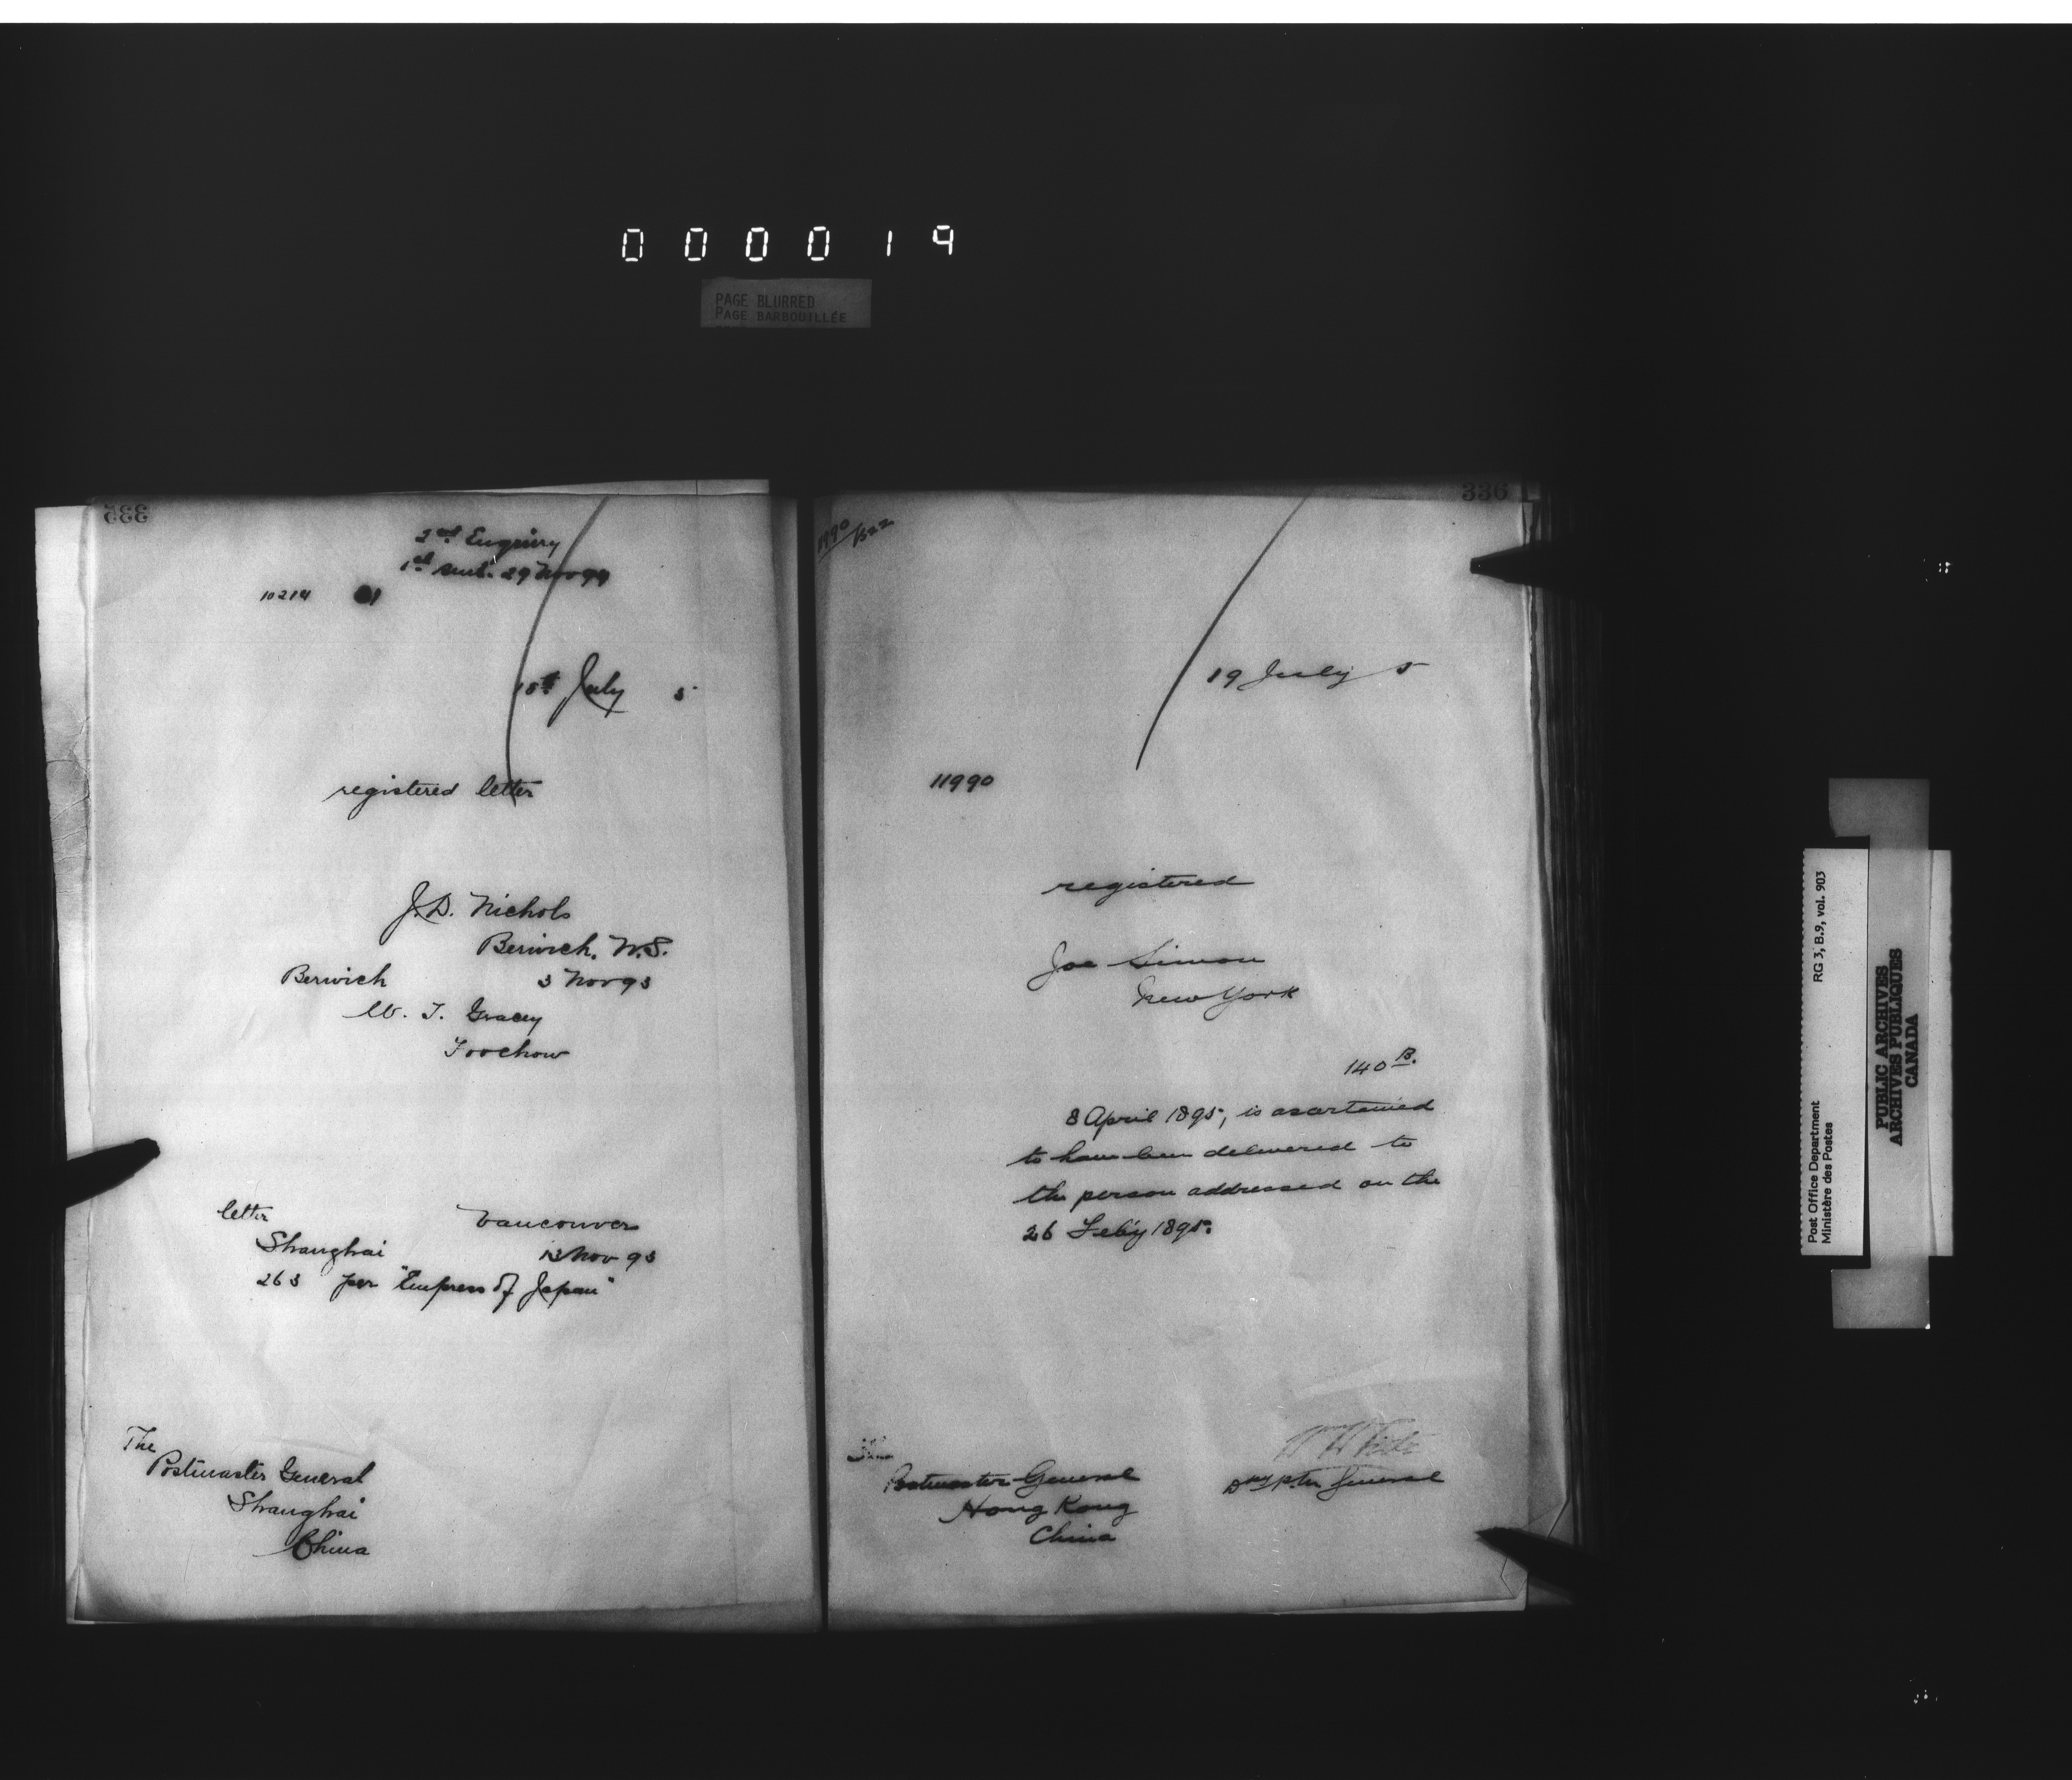 000019
PAGE BLURRED
PAGE BARBOUILLÉE
333
2nd Enquiry
1st sent. 29 Nov 94
10214
18th July 5
registered letter
J.D. Nichols
Berwick, N.S.
Berwick 3 Nov 93
W. T. Gracey
Foochow
letter Vancouver
Shanghai 13 Nov 93
263 per "Empress of Japan"
The
Postmaster General
Shanghai
China
336
11990/522
19 July 5
11990
registered
Joe Simon
New York
140 B.
8 April 1895, is ascertained
to have been delivered to
the person addressed on the
26 Feby 1895.
The
Postmaster General
Hong Kong
China
W H
Dpy P.Mr General
Post Office Department
Ministère des Postes
RG 3, B.9, vol. 903
PUBLIC ARCHIVES
ARCHIVES PUBLIQUES
CANADA